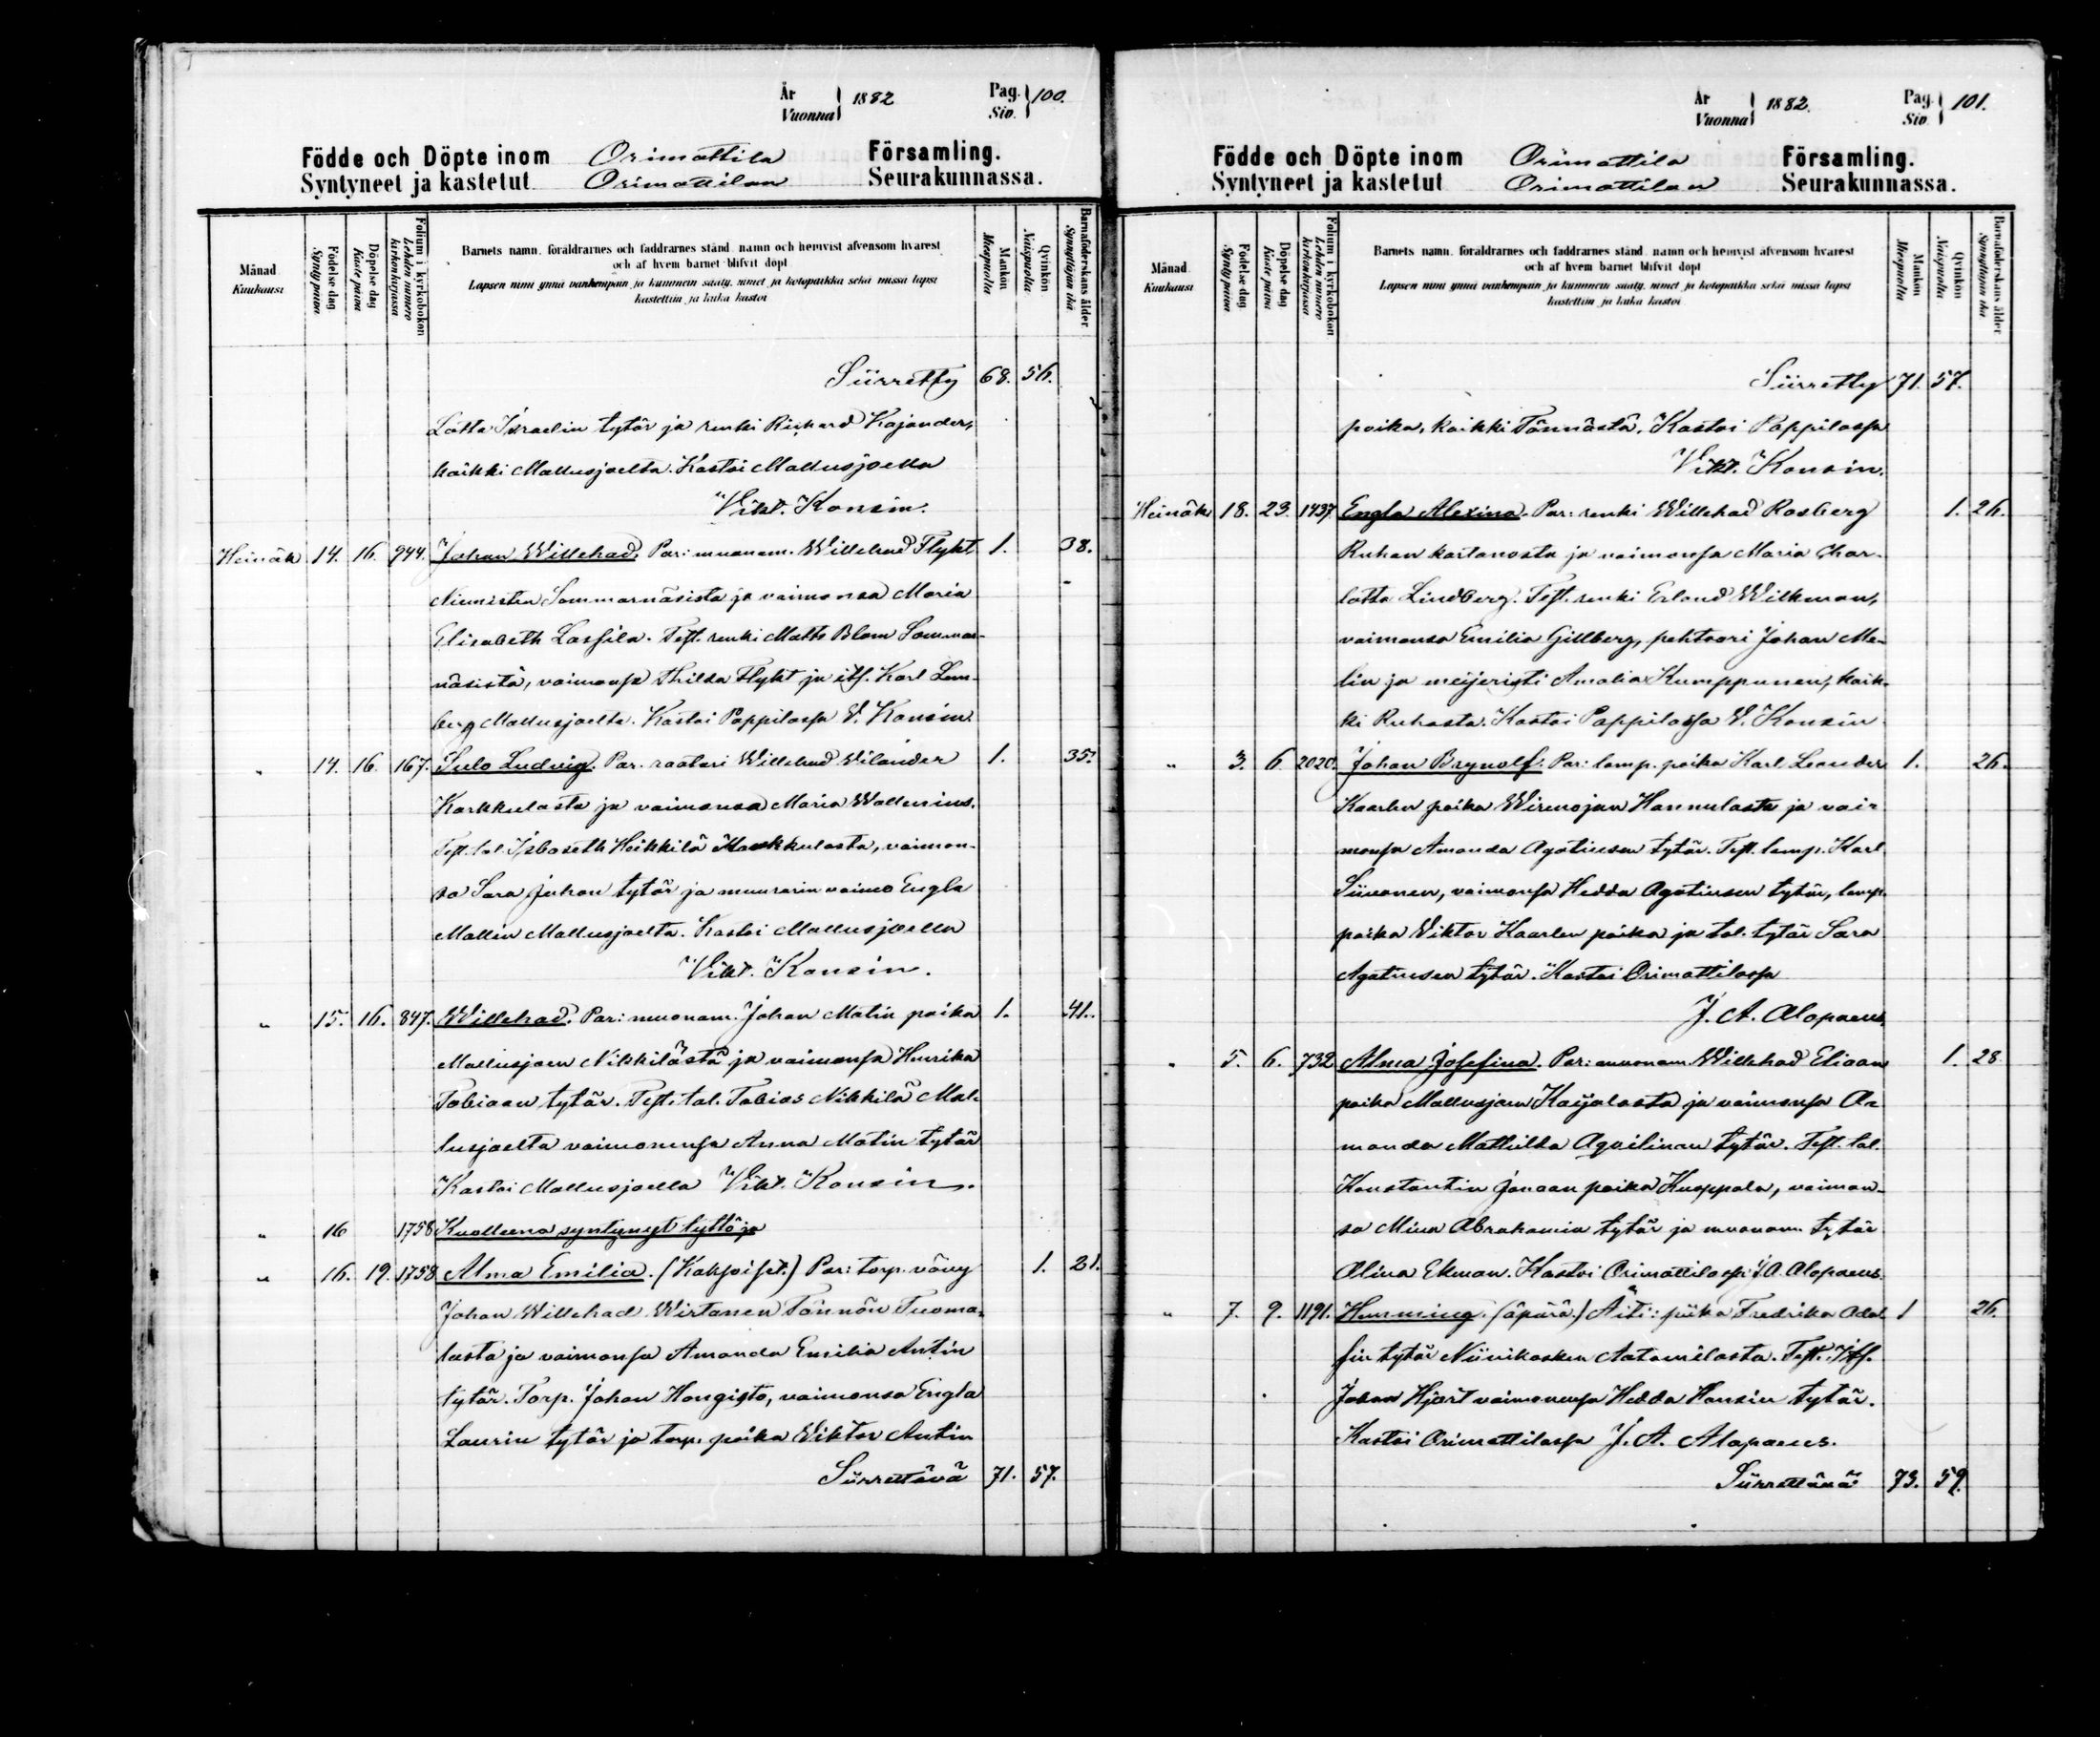 År
Vuonna
1882
Pag.
Siv.
100.
Födde och Döpte inom Orimattila Församling.
Syntyneet ja kastetut Orimattilan Seurakunnassa.
Månad
Kuukausi
Födelse dag
Synty päivä
Döpelse dag
Kaste päivä
Folium i kyrkoboken
Lehden numero kirkonkirjassa
Barnets namn, föräldrarnes och faddrarnes stånd, namn och hemvist äfvensom hvarest
och af hvem barnet blifvit döpt
Lapsen nimi ynnä vanhempain ja kummein sääty, nimet ja kotopaikka sekä missä lapsi
kastettiin ja kuka kastoi
Mankön
Miespuolia
Qvinkön
Naispuolia
Barnaföderskans ålder
Synnyttäjän ikä
Siirretty 68. 56.
Lotta Israelin tytär ja renki Richard Kajander,
kaikki Mallusjoelta. Kastoi Mallusjoella
Vikt. Konsin.
Heinäk 14. 16. 944. Johan Willehad. Par: muonam. Willehad Flykt 1. 38.
Niemisten Sommarnäsistä ja vaimonsa Maria
Elisabeth Lassila. Test. renki Matts Blom Sommar-
näsistä, vaimonsa Thilda Flykt ja its. Karl Lem-
berg Mallusjoelta. Kastoi Pappilassa V. Konsin.
" 14. 16. 167. Sulo Ludvig. Par. raatari Willehad Wilander 1. 35.
Karkkulasta ja vaimonsa Maria Wallenius.
Test. tal. Isboseth Heikkilä Karkkulasta, vaimon-
sa Sara Juhon tytär ja muurarin vaimo Engla
Mallin Mallusjoelta. Kastoi Mallusjoella
Vikt. Konsin.
" 15. 16. 847. Willehad. Par: muonam. Johan Matin poika 1. 41.
Mallusjoen Nikkilästä ja vaimonsa Henrika
Tobiaan tytär. Test. tal. Tobias Nikkilä Mal-
lusjoelta vaimonensa Anna Matin tytär
Kastoi Mallusjoella Vikt. Konsin.
" 16 1758 Kuolleena syntynyt tyttö ja
" 16. 19. 1758 Alma Emilia. (Kaksoiset.) Par: torp. vävy 1. 21.
Johan Willehad Wirtanen Tönnön Tuoma-
lasta ja vaimonsa Amanda Emilia Antin
tytär. Torp. Johan Hongisto, vaimonsa Engla
Laurin tytär ja torp. poika Wiktor Antin
Siirrettävä 71. 57.
År
Vuonna
1882.
Pag.
Siv.
101.
Födde och Döpte inom Orimattila Församling.
Syntyneet ja kastetut Orimattilan Seurakunnassa.
Månad
Kuukausi
Födelse dag
Synty päivä
Döpelse dag
Kaste päivä
Folium i kyrkoboken
Lehden numero kirkonkirjassa
Barnets namn, föräldrarnes och faddrarnes stånd, namn och hemvist äfvensom hvarest
och af hvem barnet blifvit döpt
Lapsen nimi ynnä vanhempain ja kummein sääty, nimet ja kotopaikka sekä missä lapsi
kastettiin ja kuka kastoi
Mankön
Miespuolia
Qvinkön
Naispuolia
Barnaföderskans ålder
Synnyttäjän ikä
Siirretty 71. 57.
poika, kaikki Tönnöstä. Kastoi Pappilassa
Vikt. Konsin.
Heinäk 18. 23. 1437 Engla Alexina. Par: renki Willehad Rosberg 1. 26.
Ruhan kartanosta ja vaimonsa Maria Char-
lotta Lindberg. Test. renki Erland Wilkman,
vaimonsa Emilia Gillberg, pehtoori Johan Me-
lin ja meijeristi Amalia Kumppunen, kaik-
ki Ruhasta. Kastoi Pappilassa V. Konsin
" 3. 6. 2020. Johan Brynolf. Par: lamp. poika Karl Leander 1. 26.
Kaarlen poika Wirenojan Hannulasta ja vai-
monsa Amanda Agatiusen tytär. Test. lamp. Karl
Siivonen, vaimonsa Hedda Agatiusen tytär, lamp.
poika Wiktor Kaarlen poika ja tal. tytär Sara
Agatiusen tytär. Kastoi Orimattilassa
J. A. Alopaeus.
" 5. 6. 732 Alma Josefina. Par: muonam. Willehad Eliaan 1. 28
poika Mallusjoen Kaijalasta ja vaimonsa A-
manda Mathilda Aqvilinan tytär. Test. tal.
Konstantin Jonaan poika Kuoppala, vaimon-
sa Mina Abrahamin tytär ja muonam. tytär
Alina Ekman. Kastoi Orimattilassa J. A. Alopaeus.
" 7. 9. 1191. Hemming. (äpärä.) Äiti: piika Fredrika Adol- 1 26.
fin tytär Niinikosken Aatamilasta. Test. Its.
Johan Hjort vaimonensa Hedda Hansin tytär.
Kastoi Orimattilassa J. A. Alopaeus.
Siirrettävä 73. 59.